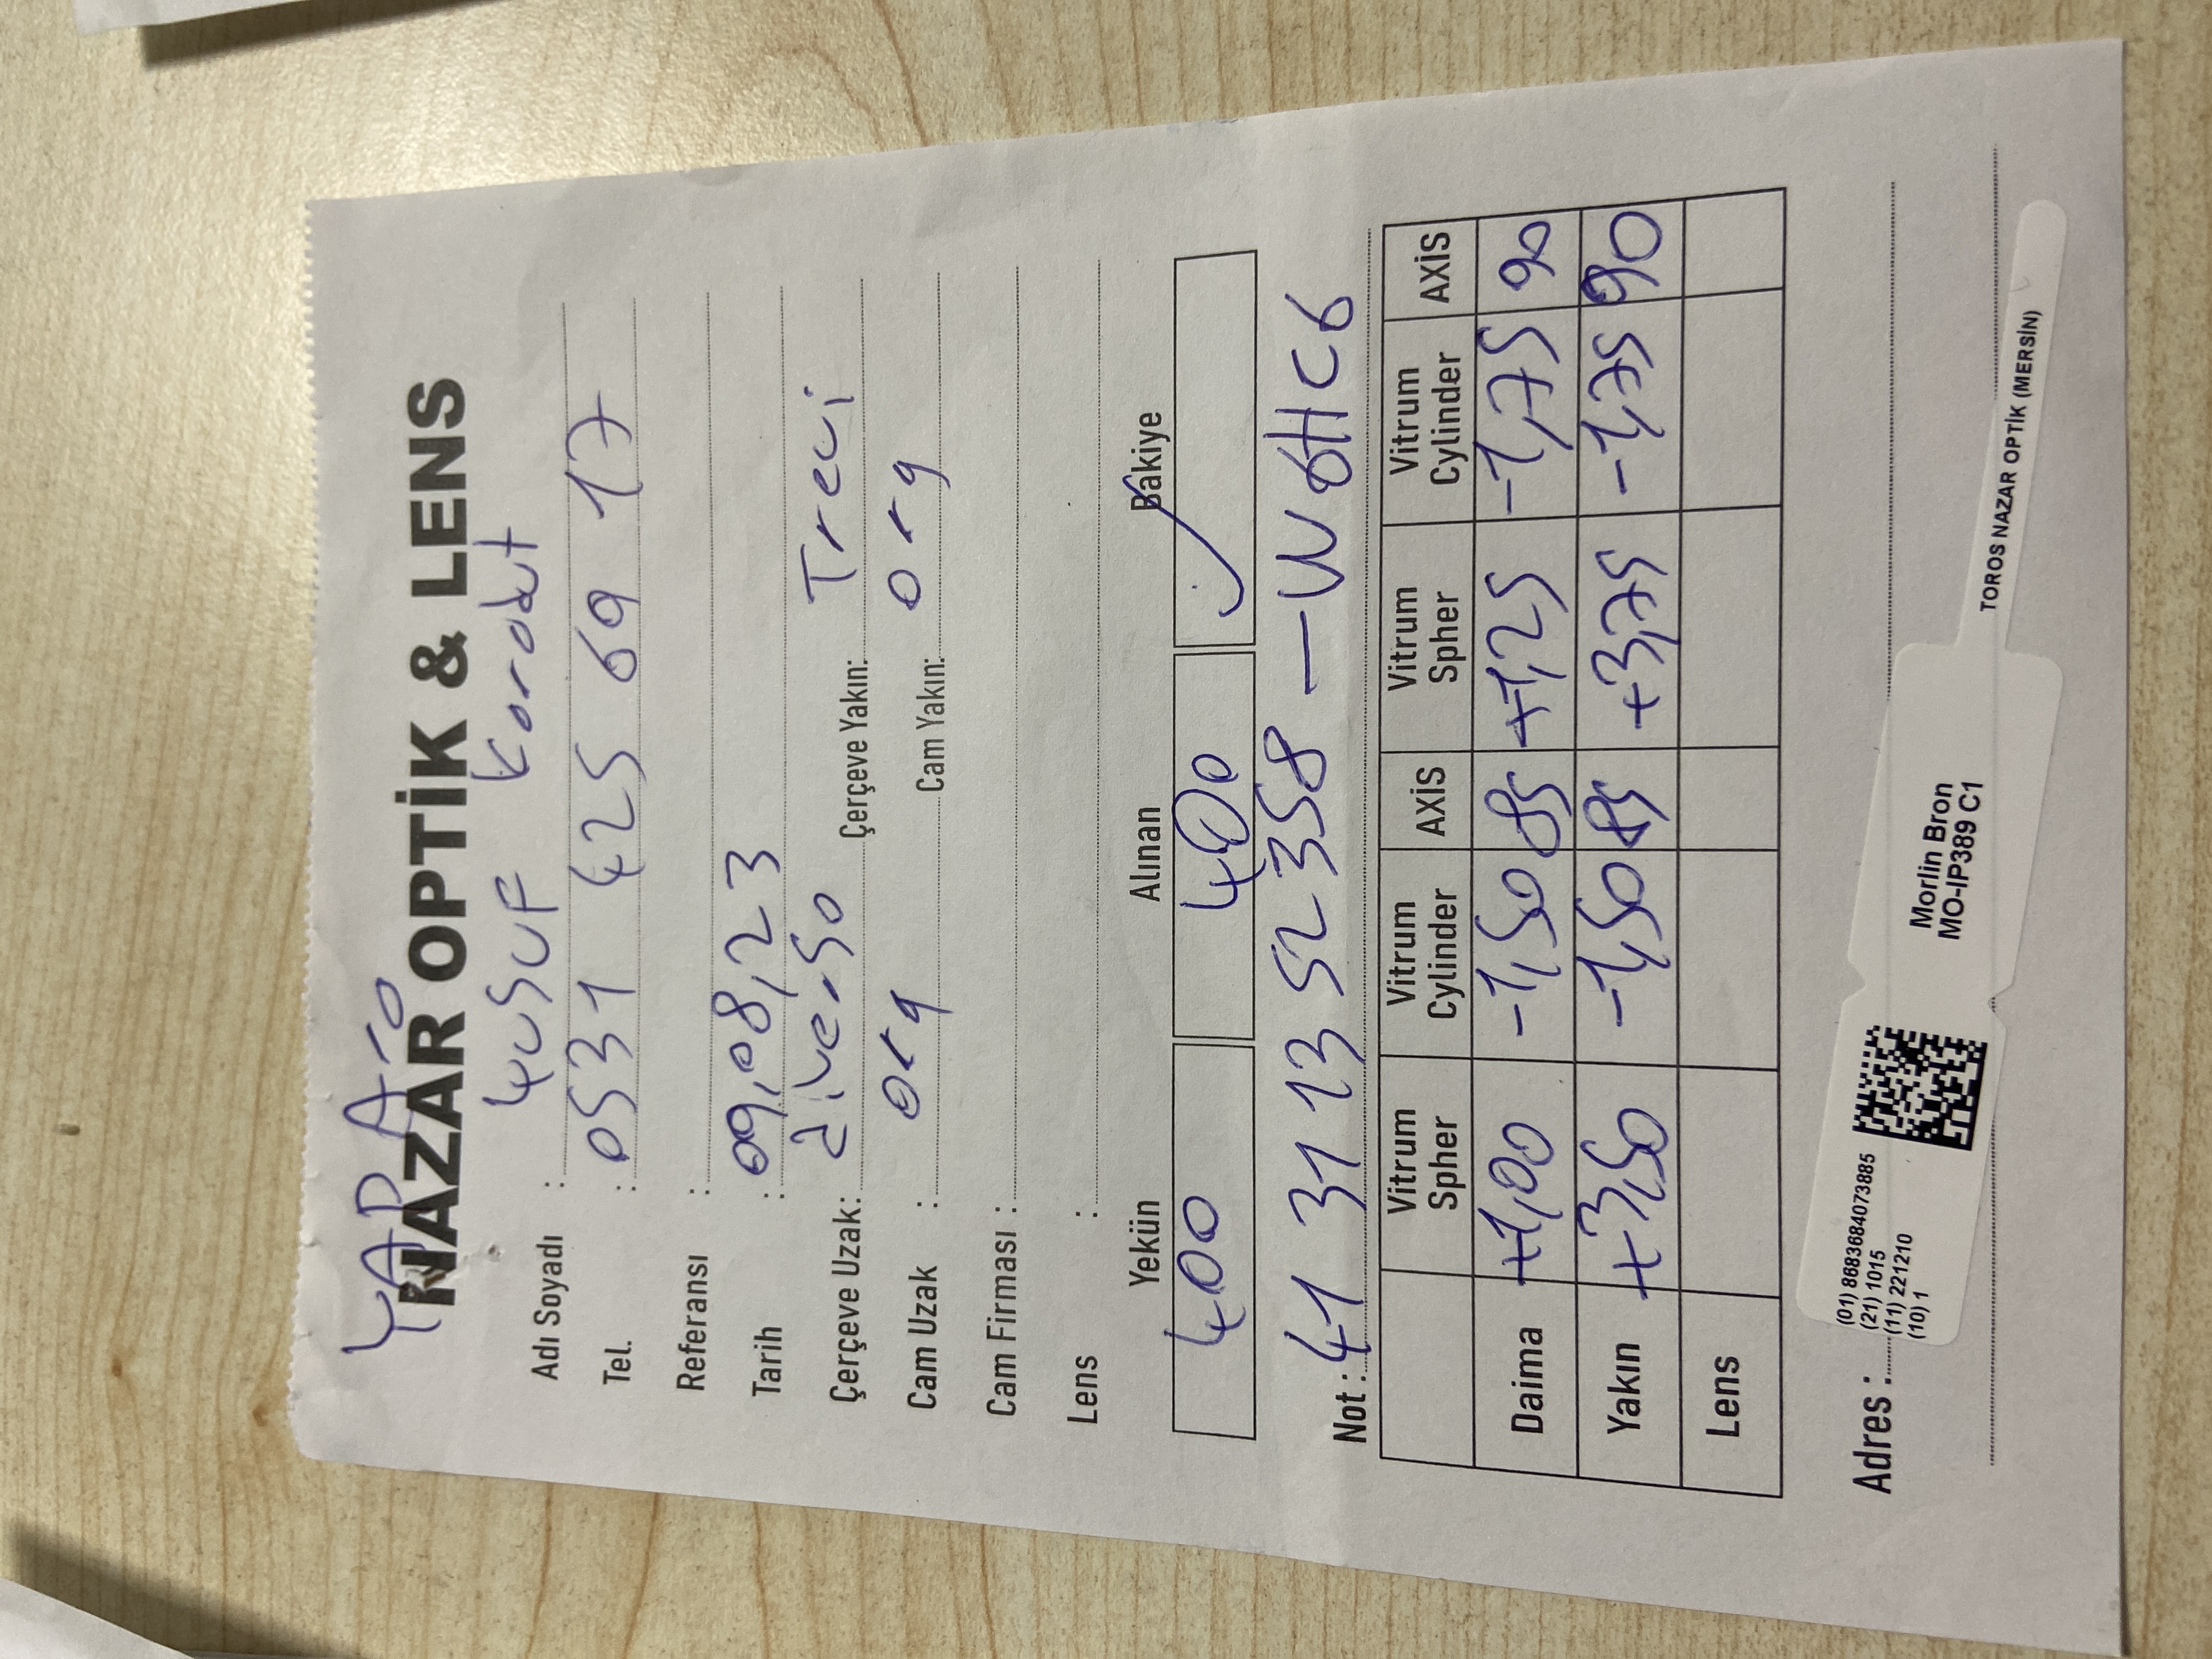 NAZAR OPTİK & LENS
Adı Soyadı : Yusuf Korodut
Tel. : 0531 425 69 17
Referansı :
Tarih : 09,08,23
Çerçeve Uzak: diverso Çerçeve Yakın: Trevi
Cam Uzak : org Cam Yakın: org
Cam Firması :
Lens :
Yekün Alınan Bakiye
400 400 ✓
Not : 41 31 13 52 358 — W6HC6
Vitrum Spher Vitrum Cylinder AXİS Vitrum Spher Vitrum Cylinder AXİS
Daima +1,00 -1,50 85 +1,25 -1,75 90
Yakın +3,50 -1,50 85 +3,75 -1,75 90
Lens
Adres :
(01) 8683684073885
(21) 1015
(11) 221210
(10) 1
Morlin Bron
MO-IP389 C1
TOROS NAZAR OPTİK (MERSİN)